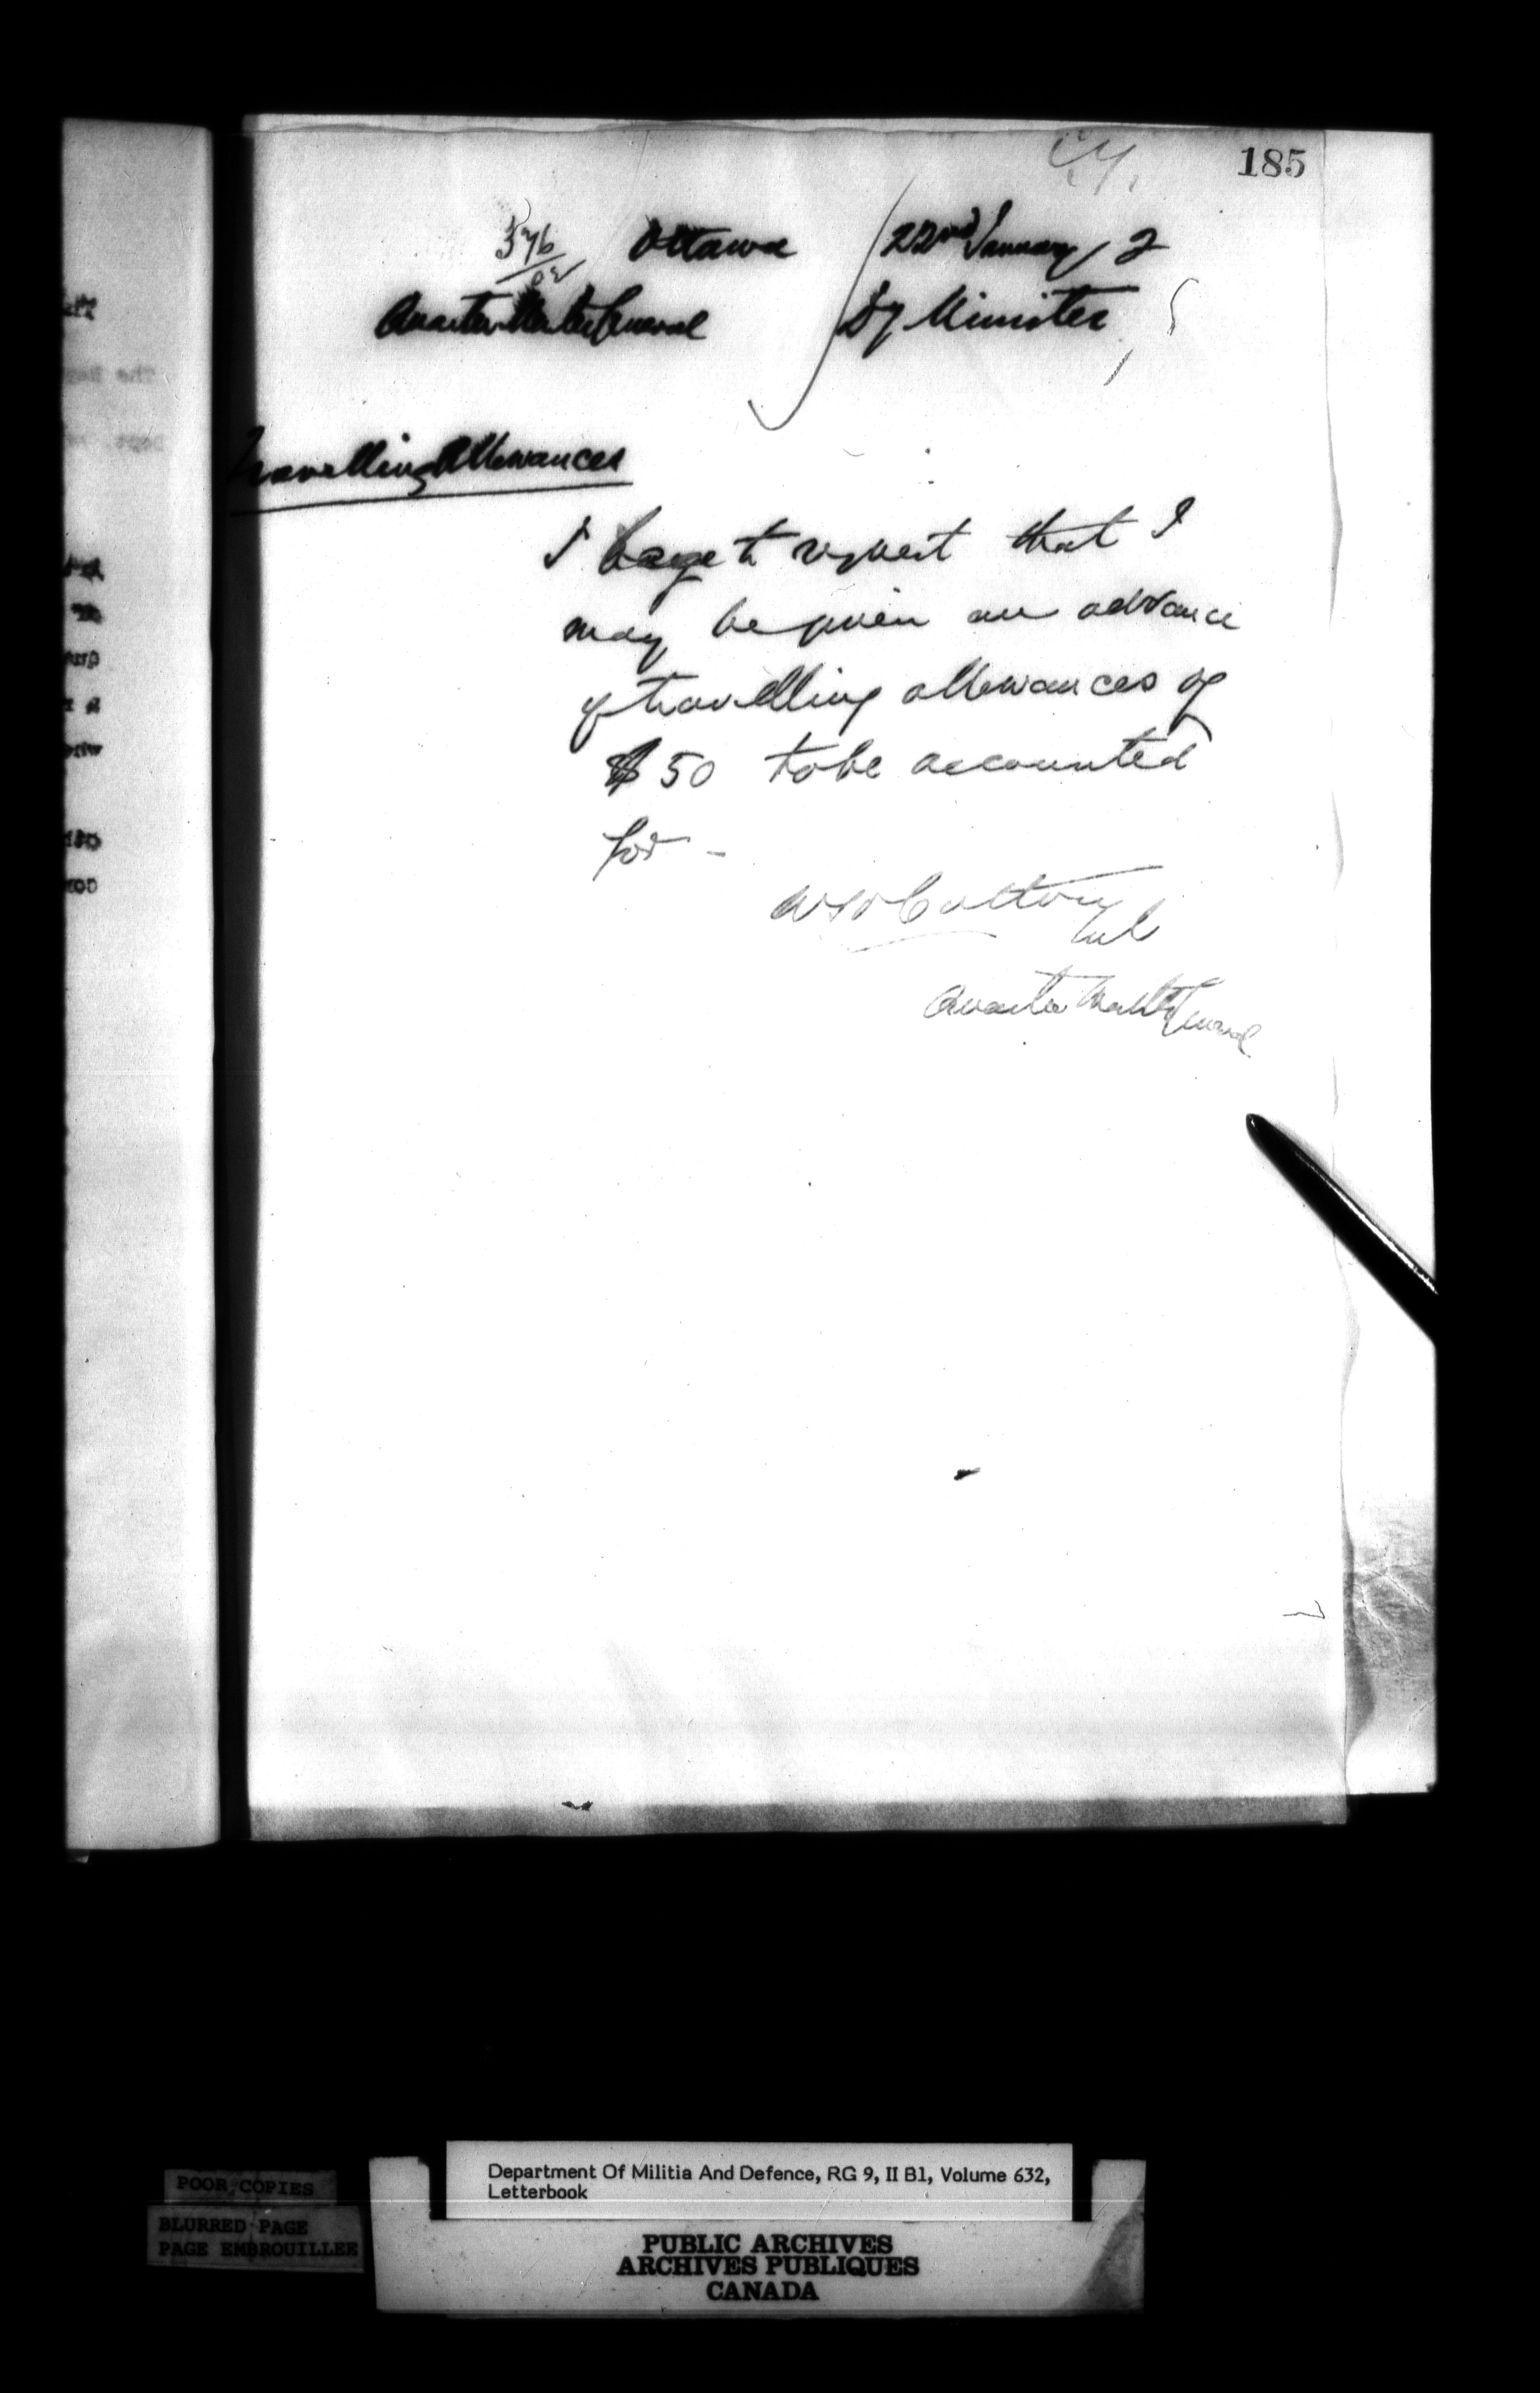 185
Ottawa 22nd January 2
Quarter Master General Dy Minister
Travelling Allowances
I beg to request that I
may be given an advance
of travelling allowances of
$50 to be accounted
for -
Col
Quarter Master General
POOR COPIES
BLURRED PAGE
PAGE EMBROUILLEE
Department Of Militia And Defence, RG 9, II B1, Volume 632,
Letterbook
PUBLIC ARCHIVES
ARCHIVES PUBLIQUES
CANADA